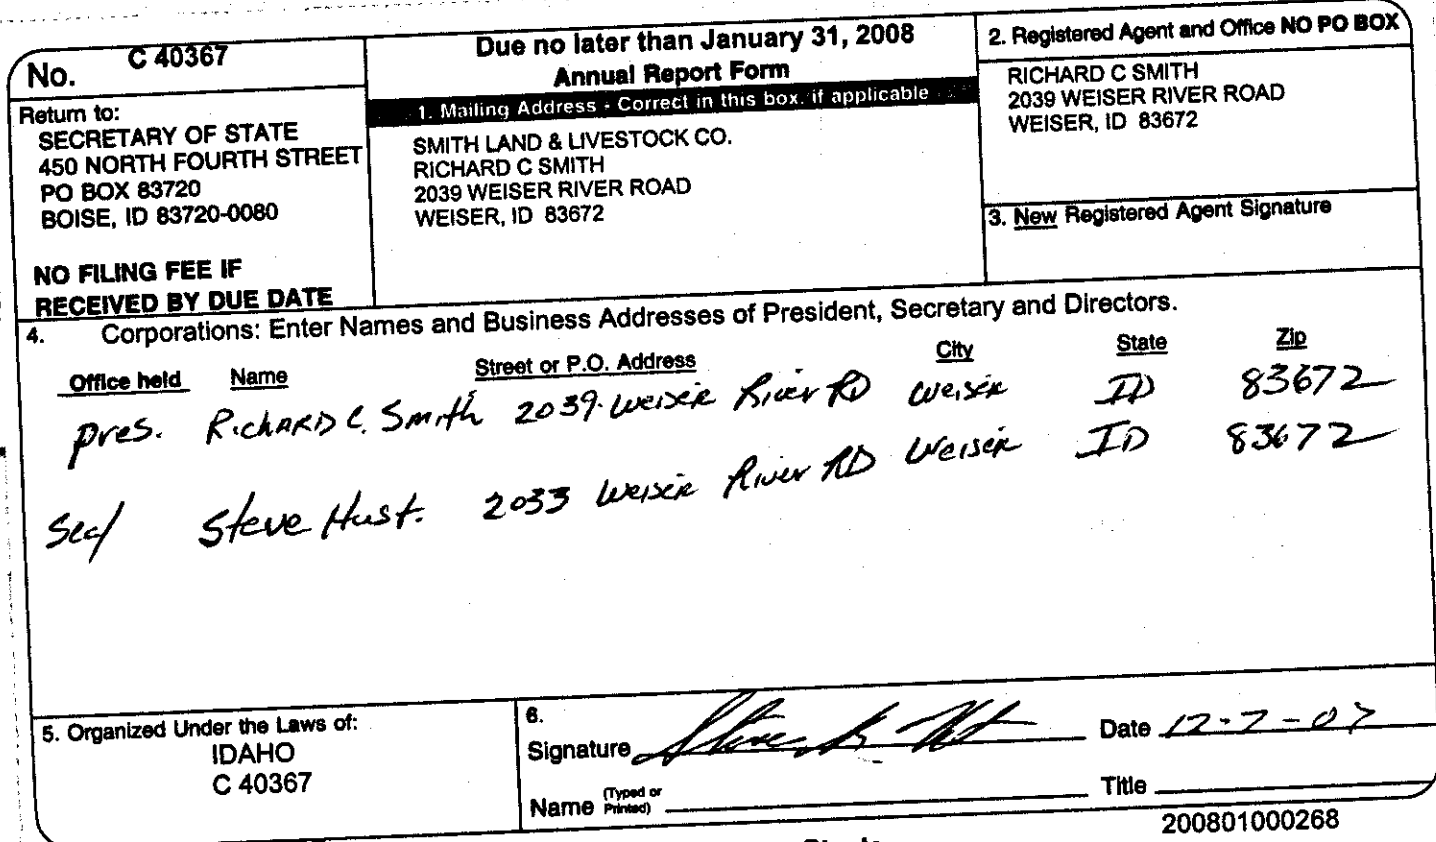 No. C 40367
Return to:
SECRETARY OF STATE
450 NORTH FOURTH STREET
PO BOX 83720
BOISE, ID 83720-0080
NO FILING FEE IF
RECEIVED BY DUE DATE
Due no later than January 31, 2008
Annual Report Form
1. Mailing Address - Correct in this box. if applicable
SMITH LAND & LIVESTOCK CO.
RICHARD C SMITH
2039 WEISER RIVER ROAD
WEISER, ID 83672
2. Registered Agent and Office NO PO BOX
RICHARD C SMITH
2039 WEISER RIVER ROAD
WEISER, ID 83672
3. New Registered Agent Signature
4. Corporations: Enter Names and Business Addresses of President, Secretary and Directors.
Office held Name Street or P.O. Address City State Zip
pres. Richard C. Smith 2039 Weiser River RD Weiser ID 83672
Sec/ Steve Hust. 2033 Weiser River RD Weiser ID 83672
5. Organized Under the Laws of:
IDAHO
C 40367
6.
Signature Date 12-7-07
Name (Typed or Printed) Title
200801000268